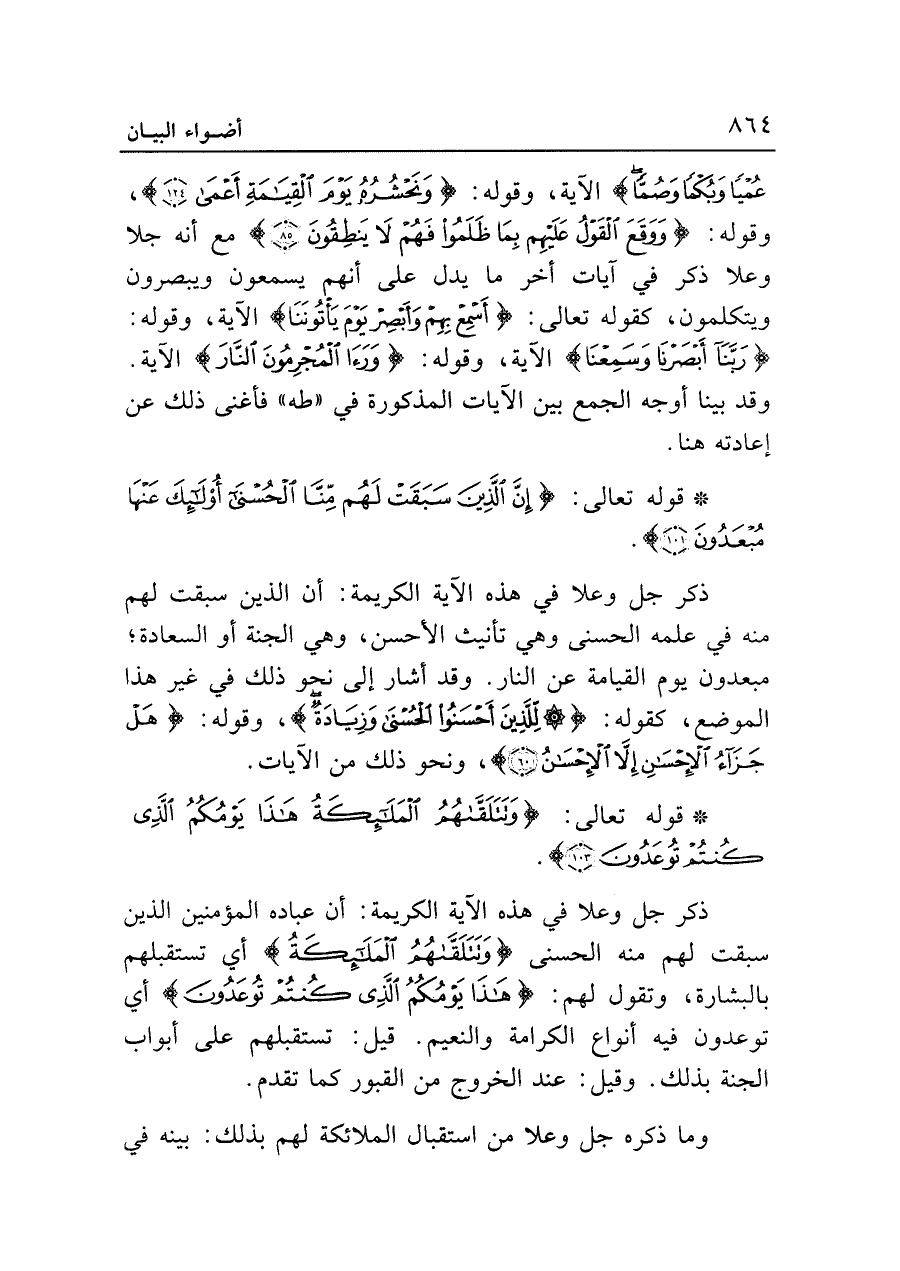 ٨٦٤ أضواء البيان
عُمْيًا وَبُكْمًا وَصُمًّا ۖ﴾ الآية، وقوله: ﴿وَنَحْشُرُهُ يَوْمَ الْقِيَـٰمَةِ أَعْمَىٰ ١٢٤﴾،
وقوله: ﴿وَوَقَعَ الْقَوْلُ عَلَيْهِم بِمَا ظَلَمُوا۟ فَهُمْ لَا يَنطِقُونَ ٨٥﴾ مع أنه جلا
وعلا ذكر في آيات أخر ما يدل على أنهم يسمعون ويبصرون
ويتكلمون، كقوله تعالى: ﴿أَسْمِعْ بِهِمْ وَأَبْصِرْ يَوْمَ يَأْتُونَنَا﴾ الآية، وقوله:
﴿رَبَّنَآ أَبْصَرْنَا وَسَمِعْنَا﴾ الآية، وقوله: ﴿وَرَءَا الْمُجْرِمُونَ النَّارَ﴾ الآية.
وقد بينا أوجه الجمع بين الآيات المذكورة في «طه» فأغنى ذلك عن
إعادته هنا.
* قوله تعالى: ﴿إِنَّ الَّذِينَ سَبَقَتْ لَهُم مِّنَّا الْحُسْنَىٰٓ أُو۟لَـٰٓئِكَ عَنْهَا
مُبْعَدُونَ ١٠١﴾.
ذكر جل وعلا في هذه الآية الكريمة: أن الذين سبقت لهم
منه في علمه الحسنى وهي تأنيث الأحسن، وهي الجنة أو السعادة؛
مبعدون يوم القيامة عن النار. وقد أشار إلى نحو ذلك في غير هذا
الموضع، كقوله: ﴿۞ لِّلَّذِينَ أَحْسَنُوا۟ الْحُسْنَىٰ وَزِيَادَةٌ ۖ﴾، وقوله: ﴿هَلْ
جَزَآءُ الْإِحْسَـٰنِ إِلَّا الْإِحْسَـٰنُ ٦٠﴾، ونحو ذلك من الآيات.
* قوله تعالى: ﴿وَتَتَلَقَّىٰهُمُ الْمَلَـٰٓئِكَةُ هَـٰذَا يَوْمُكُمُ الَّذِى
كُنتُمْ تُوعَدُونَ ١٠٣﴾.
ذكر جل وعلا في هذه الآية الكريمة: أن عباده المؤمنين الذين
سبقت لهم منه الحسنى ﴿وَتَتَلَقَّىٰهُمُ الْمَلَـٰٓئِكَةُ﴾ أي تستقبلهم
بالبشارة، وتقول لهم: ﴿هَـٰذَا يَوْمُكُمُ الَّذِى كُنتُمْ تُوعَدُونَ﴾ أي
توعدون فيه أنواع الكرامة والنعيم. قيل: تستقبلهم على أبواب
الجنة بذلك. وقيل: عند الخروج من القبور كما تقدم.
وما ذكره جل وعلا من استقبال الملائكة لهم بذلك: بينه في